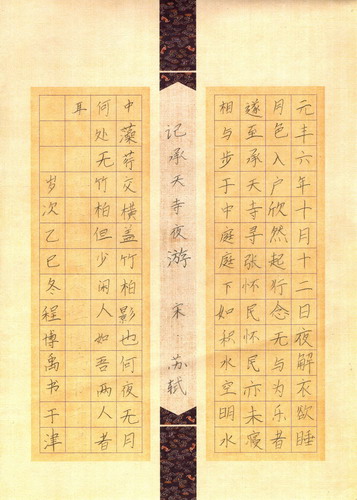 记承天寺夜游 宋·苏轼
元丰六年十月十二日夜解衣欲睡
月色入户欣然起行念无与为乐者
遂至承天寺寻张怀民怀民亦未寝
相与步于中庭庭下如积水空明水
中藻荇交横盖竹柏影也何夜无月
何处无竹柏但少闲人如吾两人者
耳
岁次乙巳冬程博禹书于津